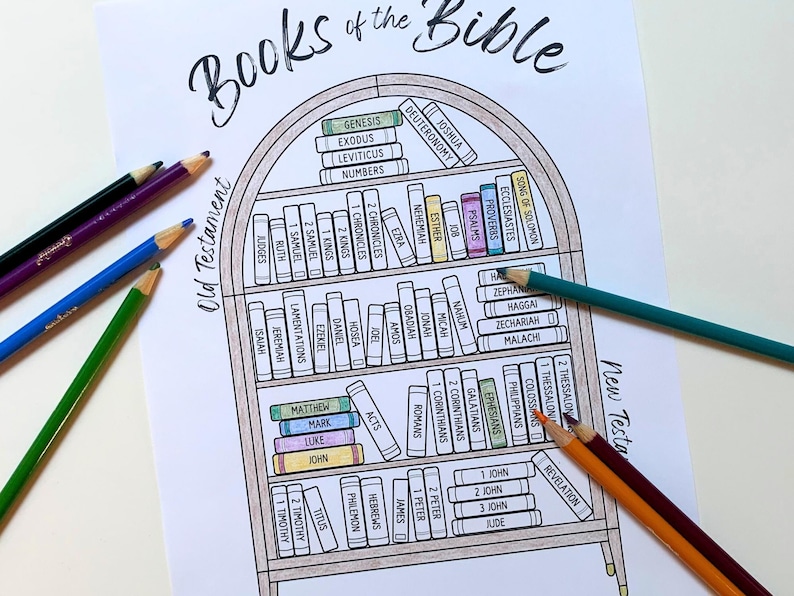 Books of the Bible
Old Testament
GENESIS
EXODUS
LEVITICUS
NUMBERS
DEUTERONOMY
JOSHUA
JUDGES
RUTH
1 SAMUEL
2 SAMUEL
1 KINGS
2 KINGS
1 CHRONICLES
2 CHRONICLES
EZRA
NEHEMIAH
ESTHER
JOB
PSALMS
PROVERBS
ECCLESIASTES
SONG OF SOLOMON
ISAIAH
JEREMIAH
LAMENTATIONS
EZEKIEL
DANIEL
HOSEA
JOEL
AMOS
OBADIAH
JONAH
MICAH
NAHUM
ZEPHANIAH
HAGGAI
ZECHARIAH
MALACHI
New
MATTHEW
MARK
LUKE
JOHN
ACTS
ROMANS
1 CORINTHIANS
2 CORINTHIANS
GALATIANS
EPHESIANS
PHILIPPIANS
COLOSSIANS
1 THESSALON
2 THESSALON
1 TIMOTHY
2 TIMOTHY
TITUS
PHILEMON
HEBREWS
JAMES
1 PETER
2 PETER
1 JOHN
2 JOHN
3 JOHN
JUDE
REVELATION